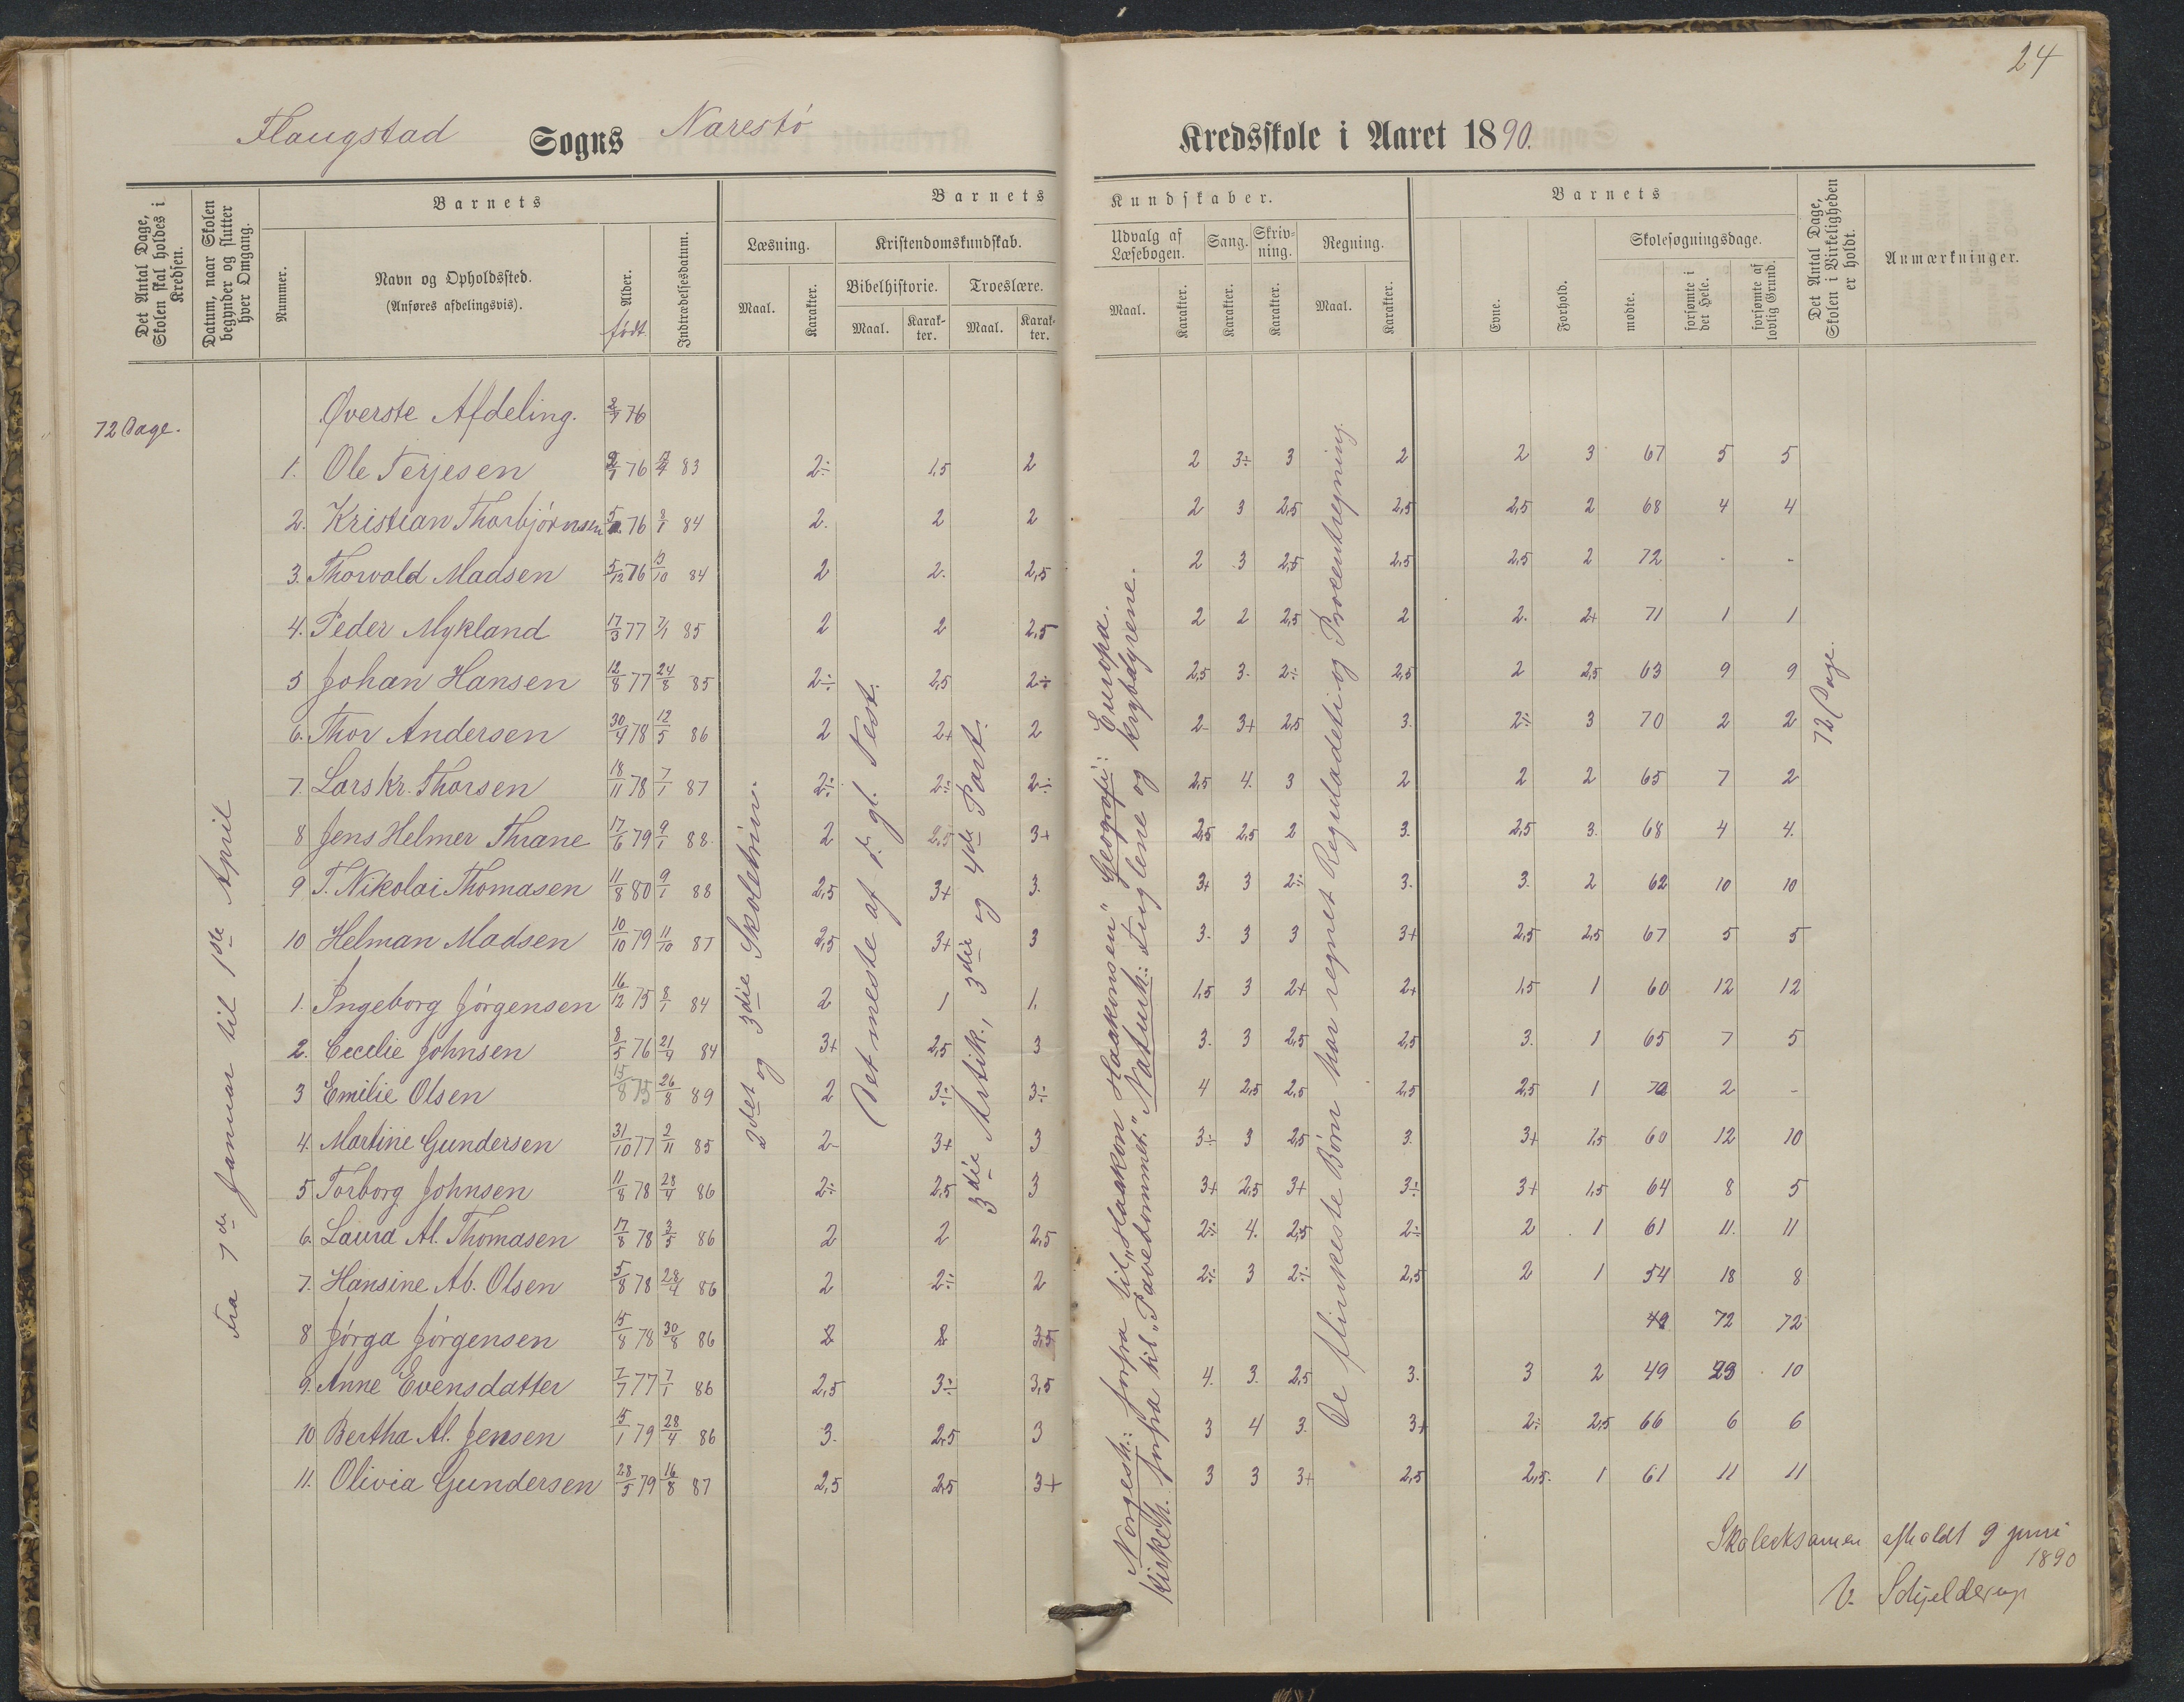 24
Flaugstad Sogns Narestö Kredsskole i Aaret 1890.
Det Antal Dage, Skolen skal holdes i Kredsen.
Datum, naar Skolen begynder og slutter hver Omgang.
Nummer.
Barnets
Navn og Opholdssted.
(Anføres afdelingsvis).
Alder.
født.
Indtrædelsesdatum.
Barnets Kundskaber.
Læsning.
Maal. Karakter.
Kristendomskundskab.
Bibelhistorie. Troeslære.
Maal. Karakter. Maal. Karakter.
Udvalg af Læsebogen. Sang. Skrivning. Regning.
Maal. Karakter. Karakter. Karakter. Maal. Karakter.
Barnets
Evne. Forhold.
Skolesøgningsdage.
mødte. forsømte i det Hele. forsømte af lovlig Grund.
Det Antal Dage, Skolen i Virkeligheden er holdt.
Anmærkninger.
72 Dage.
Fra 7de Januar til 1ste April
Øverste Afdeling. 2/7 76
1. Ole Terjesen 76 83 2÷ 1,5 2 2 3÷ 3 2 2 3 67 5 5
2. Kristian Thorbjörnsen 76 8/1 84 2. 2 2 2 3 2,5 2,5 2,5 2 68 4 4
3. Thorvald Madsen 5/12 76 13/10 84 2 2. 2,5 2 3 2,5 2,5 2,5 2 72 - -
4. Peder Mykland 17/3 77 7/1 85 2 2 2,5 2 2 2,5 2 2. 2+ 71 1 1
5 Johan Hansen 12/8 77 24/8 85 2÷ 2,5 2÷ 2,5 3. 2÷ 2,5 2 2,5 63 9 9
6. Thor Andersen 30/4 78 12/5 86 2 2+ 2 2- 3+ 2,5 3. 2÷ 3 70 2 2
7. Lars Kr. Thorsen 18/11 78 7/1 87 2÷ 2÷ 2÷ 2,5 4. 3 2 2 2 65 7 2
8 Jens Helmer Thrane 17/6 79 9/1 88. 2 2,5 3+ 2,5 2,5 2 3. 2,5 3. 68 4 4.
9 T. Nikolai Thomasen 11/8 80 9/1 88 2,5 3+ 3. 3+ 3 2÷ 3. 3. 2 62 10 10
10 Helman Madsen 10/10 79 11/10 87 2,5 3+ 3 3. 3 3 3+ 2,5 2,5 67 5 5
1. Ingeborg Jörgensen 16/12 75 8/1 84 2 1 1. 1,5 3 2+ 2+ 1,5 1 60 12 12
2. Cecilie Johnsen 8/5 76 21/4 84 3+ 2,5 3 3. 3 2,5 2,5 3. 1 65 7 5
3 Emilie Olsen 15/8 75 26/8 89 2 3÷ 3÷ 4 2,5 2,5 2,5 2,5 1 70 2 -
4. Martine Gundersen 31/10 77 2/11 85 2- 3+ 3 3÷ 3 2,5 3. 3+ 1,5 60 12 10
5 Torborg Johnsen 11/8 78 28/4 86 2÷ 2,5 3 3+ 2,5 3+ 3÷ 3+ 1,5 64 8 5
6. Laura Al. Thomasen 17/8 78 3/5 86 2 2 2,5 2÷ 4. 2,5 2÷ 2 1 61 11. 11
7. Hansine Ab. Olsen 5/8 78 28/4 86 2 2÷ 2 2÷ 3 2÷ 2,5 2 1 54 18 8
8 Jörga Jörgensen 15/8 78 30/8 86 3,5 72 72
9. Anne Evensdatter 7/7 77 7/1 86 2,5 3÷ 3,5 4. 3. 2,5 3. 3 2 49 23 10
10 Bertha Al. Jensen 15/1 79 28/4 86 3. 2,5 3 3 4 3. 3+ 2÷ 2,5 66 6 6
11. Olivia Gundersen 28/5 79 16/8 87 2,5 2,5 3+ 3 3 3+ 2,5 2,5. 1 61 11 11
2det og 3die Skoletrin.
Det meste af d. gl. Test.
3die Artik., 3die og 4de Part.
Norgesh.: forfra til „Haakon Haakonsen“ Geografi: Europa.
Kirkeh. forfra til „Pavedømmet.“ Naturh.: Fuglene og Krybdyrene.
De flinkeste Børn har regnet Reguladetri og Procentregning.
72 Dage.
Skoleeksamen afholdt 9 juni
1890
V. Schjelderup